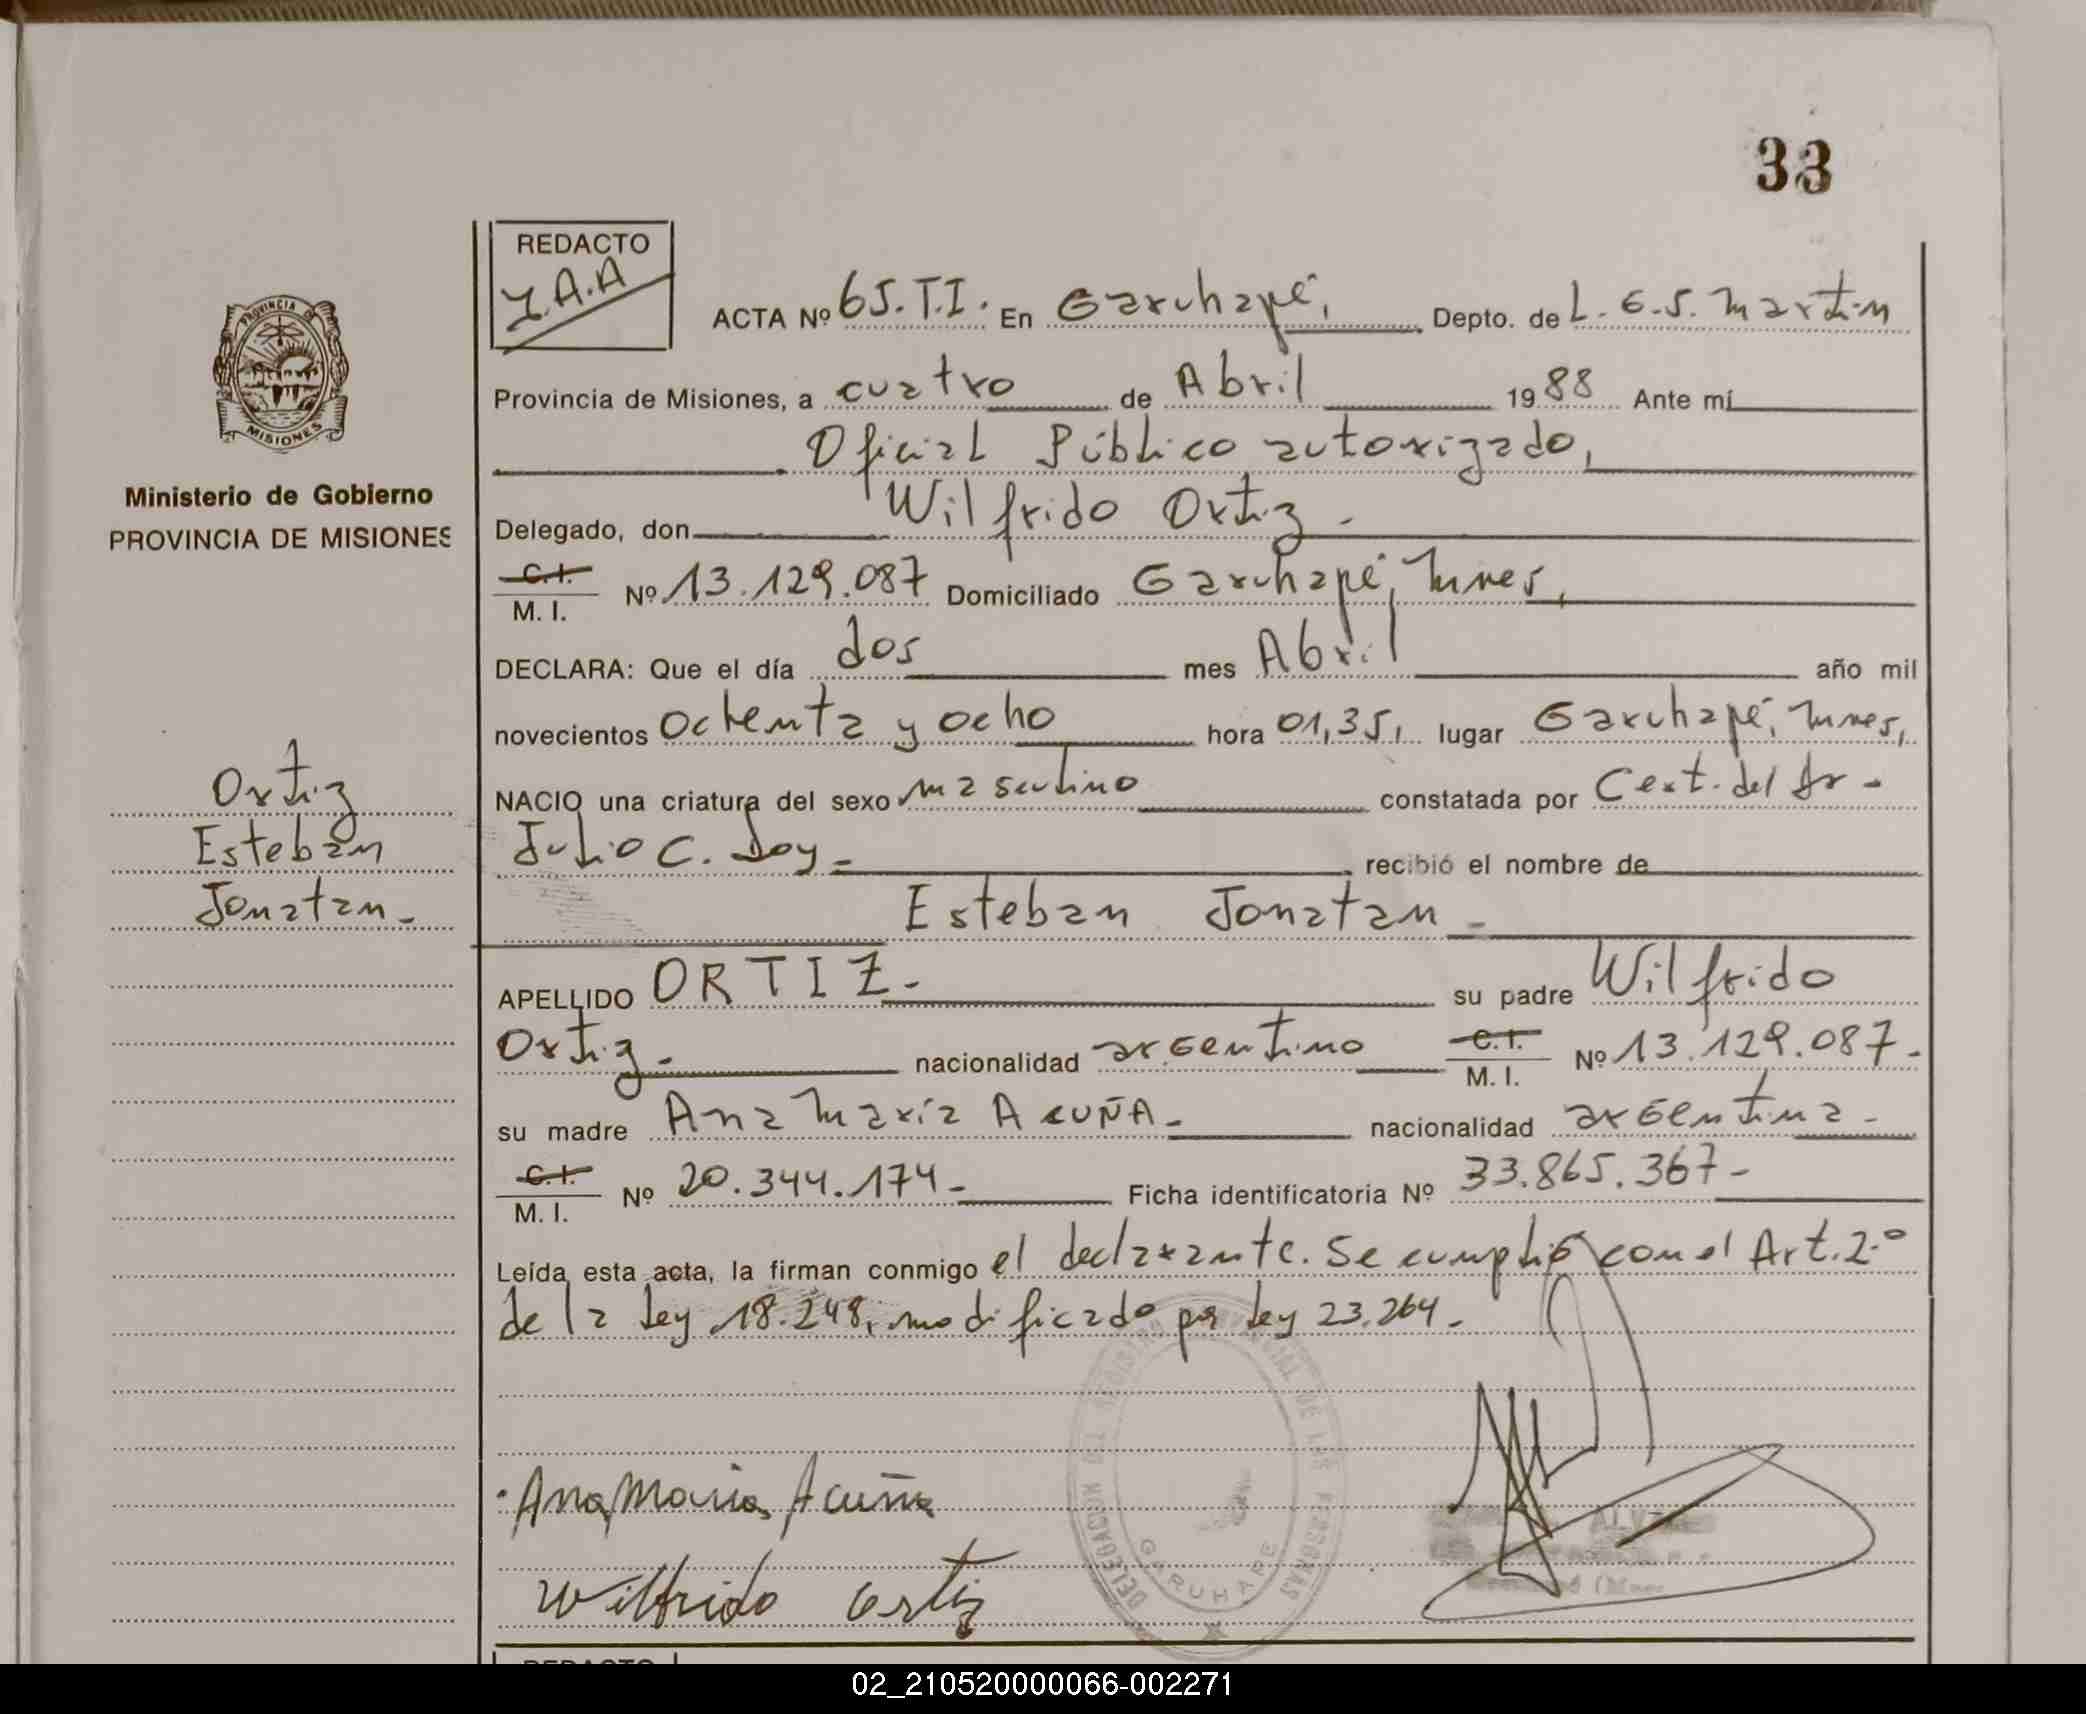 33
REDACTO
ACTA Nº 65.T.I. En Garuhapé, Depto. de L. G. S. Martin
Provincia de Misiones, a cuatro de Abril 1988 Ante mí
Oficial Público autorizado,
Delegado, don Wilfrido Ortiz -
C.I. M. I. Nº 13.129.087 Domiciliado Garuhapé, Mnes,
DECLARA: Que el día dos mes Abril año mil
novecientos ochenta y ocho hora 01,35, lugar Garuhapé, Mnes,
NACIO una criatura del sexo masculino constatada por Cert. del Dr -
Julio C. recibió el nombre de
Esteban Jonatan -
APELLIDO ORTIZ - su padre Wilfrido
Ortiz - nacionalidad argentino C.I. M. I. Nº 13.129.087 -
su madre Ana Maria ACUÑA - nacionalidad argentina -
C.I. M. I. Nº 20.344.174 - Ficha identificatoria Nº 33.865.367 -
Leída esta acta, la firman conmigo el declarante. Se cumplió con el Art. 2.º
de la Ley 18.248, modificado por Ley 23.264 -
Ana Maria Acuña
Wilfrido Ortiz
PROVINCIA DE
MISIONES
Ministerio de Gobierno
PROVINCIA DE MISIONES
Ortiz
Esteban
Jonatan -
DELEGACION DEL REGISTRO PROVINCIAL DE LAS PERSONAS
GARUHAPE
REDACTO
02_210520000066-002271